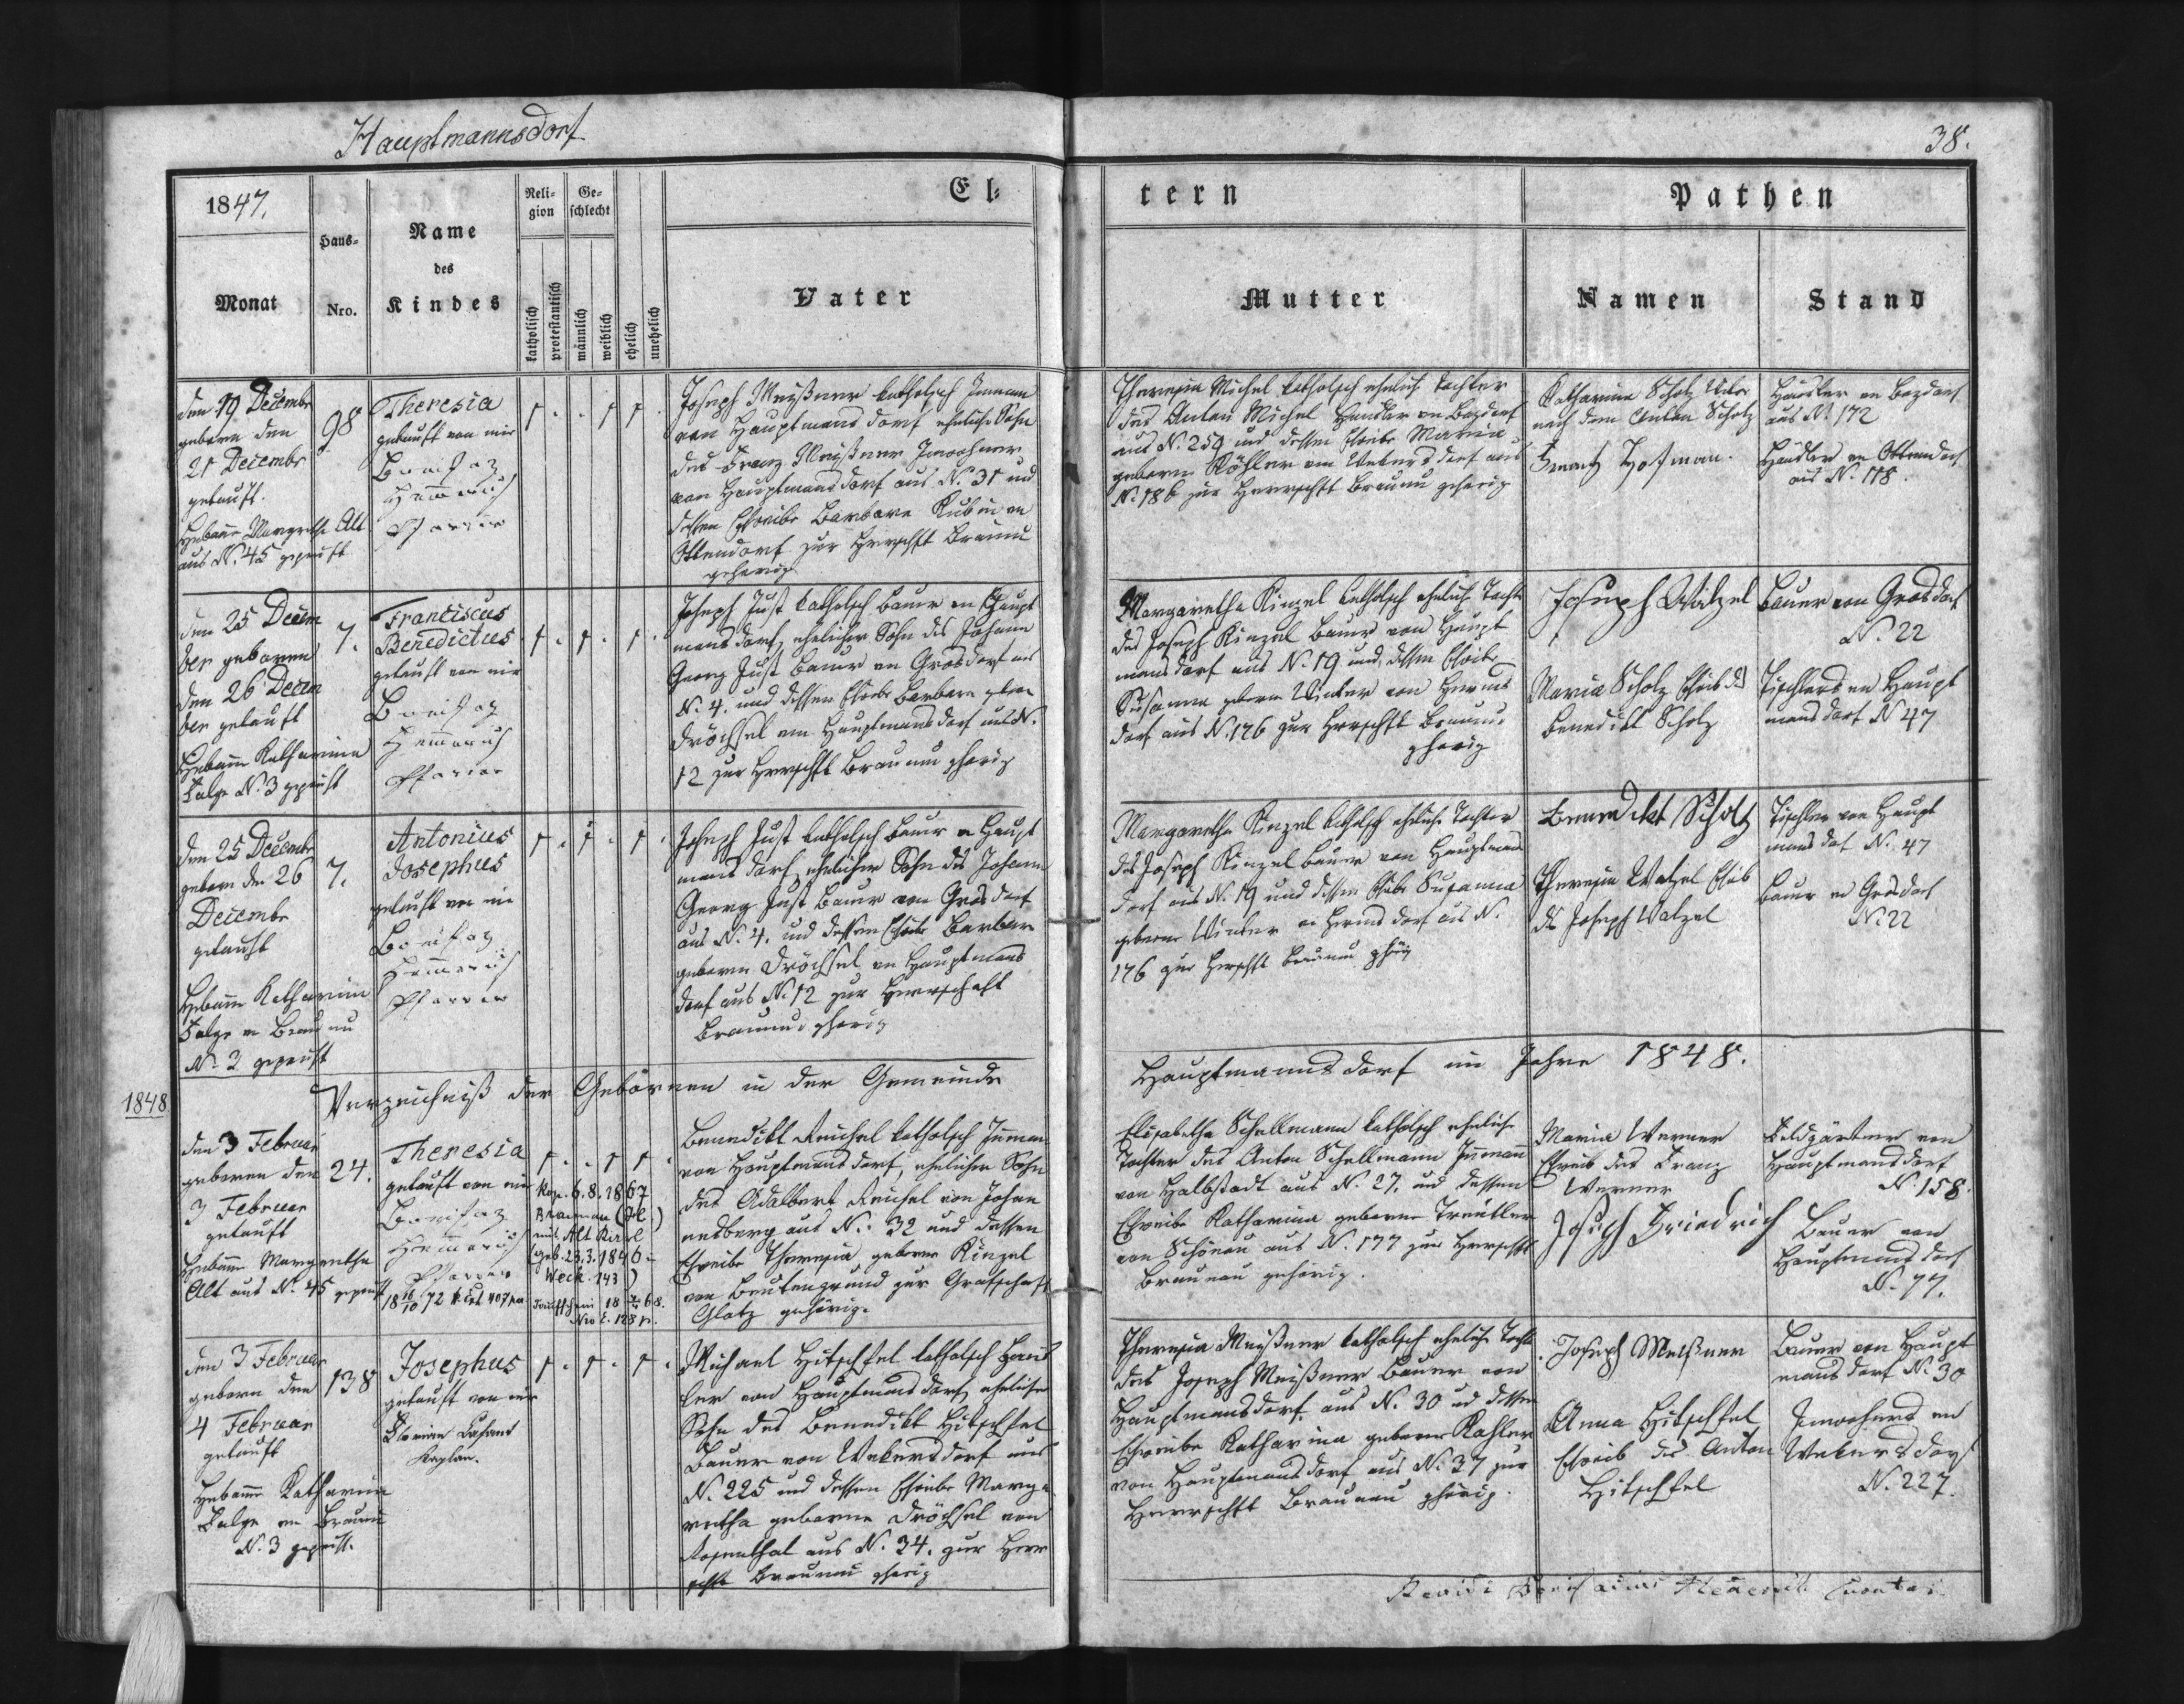 Hauptmannsdorf
38.
1847.
Monat
Haus-
Nro.
Name
des
Kindes
Reli-
gion
Ge-
schlecht
katholisch
protestantisch
männlich
weiblich
ehelich
unehelich
El-
tern
Vater
Mutter
Pathen
Namen
Stand
den 19 Decembr
geboren den
21 Decembr
getauft.
Hebame Margrethe Alt
aus N. 45 geprüft
98
Theresia
getauft von mir
Bonifaz
Pfarrer
Joseph Meißner katholisch Inman
von Hauptmansdorf ehelicher Sohn
des Franz Meißner Inwohner
von Hauptmansdorf aus N. 31 und
dessen Eheweibe Barbara
Ottendorf zur Herrschft Braunau
gehörig
Theresia Michel katholisch eheliche Tochter
des Anton Michel
aus N. 259 und dessen Eheweibe Maria
geborne Köhler von Wekersdorf aus
N. 186 zur Herrschft Braunau gehörig
Katharina Scholz
nach dem Anton Scholz
Ignatz Hofman.
aus N. 172
Händler von Ottendorf
aus N. 118.
den 25 Decem
ber geboren
den 26 Decem
ber getauft
Hebame Katharina
Falge N. 3 geprüft
7.
Franciscus
Benedictus
getauft von mir
Bonifaz
Pfarrer
Joseph Just katholisch Bauer von Haupt
mansdorf, ehelicher Sohn des Johann
Georg Just Bauer von Grosdorf aus
N. 4. und dessen Eheweibe Barbara geborne
Dröschsel von Hauptmansdorf aus N.
12 zur Herrschft Braunau gehörig
Margaretha Kinzel katholisch eheliche Tochter
des Joseph Kinzel Bauer von Haupt
mansdorf aus N. 19 und dessen Eheweibe
Susanna geborne Winter von Herms
dorf aus N. 176 zur Herrschft Braunau
gehörig
Joseph Walzel
Maria Scholz Eheweib des
Benedikt Scholz
Bauer von Grosdorf
N. 22
Tischlers von Haupt
mansdorf N 47
den 25 Decembr
geboren den 26
Decembr
getauft
Hebame Katharina
Falge von Braunau
N. 3 geprüft
7.
Antonius
Josephus
getauft von mir
Bonifaz
Pfarrer
Joseph Just katholisch Bauer von Haupt
mansdorf, ehelicher Sohn des Johann
Georg Just Bauer von Grosdorf
aus N. 4. und dessen Eheweibe Barbara
geborne Dröschsel von Hauptmans
dorf aus N. 12 zur Herrschaft
Braunau gehörig
Margaretha Kinzel katholisch eheliche Tochter
des Joseph Kinzel Bauer von Hauptmans
dorf aus N. 19 und dessen Eheweibe Susanna
geborne Winter von Hermsdorf aus N.
176 zur Herrschft Braunau gehörig
Benedikt Scholz
Theresia Walzel Eheweib
des Joseph Walzel
Tischler von Haupt
mansdorf N. 47
Bauer von Grosdorf
N. 22
1848
Verzeichniß der Gebornen in der Gemeinde
Hauptmannsdorf im Jahre 1848.
den 3 Februar
geboren den
3 Februar
getauft
Hebame Margaretha
Alt aus N. 45 geprüft
24.
Theresia
getauft von mir
Bonifaz
Pfarrer
Kop. 6.8.1867
Braunau
mit Alt Karl
(geb. 23.3.1846
Weck. 143)
Benedikt Reichel katholisch Inman
von Hauptmansdorf, ehelicher Sohn
des Adalbert Reichel von Johan
nesberg aus N. 32 und dessen
Eheweibe Theresia geborne Kinzel
von Beutengrund zur Grafschaft
Glatz gehörig.
Elisabetha Schellmann katholisch eheliche
Tochter des Anton Schellmann Inman
von Halbstadt aus N. 27, und dessen
Eheweibe Katharina geborne Treutler
von Schönau aus N. 177 zur Herrschft
Braunau gehörig.
Maria Werner
Eheweib des Franz
Werner
Joseph Friedrich
Feldgärtner von
Hauptmansdorf
N. 158.
Bauer von
Hauptmansdorf
N. 77.
den 3 Februar
geboren den
4 Februar
getauft
Hebame Katharina
Falge von Braunau
N. 3 geprüft.
138
Josephus
getauft von mir
Florian
Kaplan.
Michael Hitschfel katholisch Händ
ler von Hauptmansdorf, ehelicher
Sohn des Benedikt Hitschfel
Bauer von Wekersdorf aus
N. 225 und dessen Eheweibe Marga
retha geborne Dröschsel von
Rosenthal aus N. 34. zur Herr
schft Braunau gehörig
Theresia Meißner katholisch eheliche Tochter
des Joseph Meißner Bauer von
Hauptmansdorf aus N. 30 und dessen
Eheweibe Katharina geborne Kahler
von Hauptmansdorf aus N. 37 zur
Herrschft Braunau gehörig.
Joseph Meißner
Anna Hitschfel
Eheweib des Anton
Hitschfel
Bauer von Haupt
mansdorf N. 30
Inwohners von
Wekersdorf
N. 227.